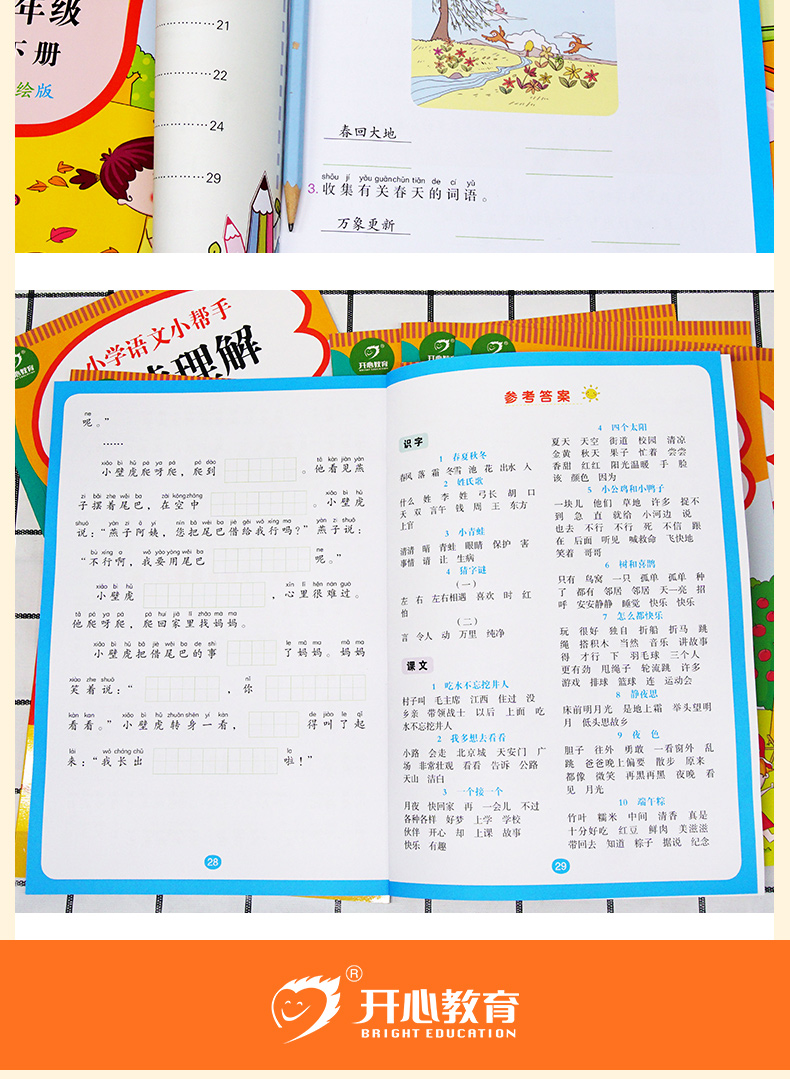 年级
下册
绘版
21
22
24
29
春回大地
shōu jí yǒu guān chūn tiān de cí yǔ
3. 收集有关春天的词语。
万象更新
小学语文小帮手
理解
开心教育
开心教育
ne
呢。”
……
xiǎo bì hǔ pá ya pá pá dào tā kàn jiàn yàn
小壁虎爬呀爬，爬到 。他看见燕
zi bǎi zhe wěi ba zài kōng zhōng xiǎo bì hǔ
子摆着尾巴，在空中 。小壁虎
shuō yàn zi ā yí nín bǎ wěi ba jiè gěi wǒ xíng ma yàn zi shuō
说：“燕子阿姨，您把尾巴借给我行吗？”燕子说：
bù xíng a wǒ yào yòng wěi ba ne
“不行啊，我要用尾巴 呢。”
xiǎo bì hǔ xīn lǐ hěn nán guò
小壁虎 ，心里很难过。
tā pá ya pá pá huí jiā lǐ zhǎo mā ma
他爬呀爬，爬回家里找妈妈。
xiǎo bì hǔ bǎ jiè wěi ba de shì le mā ma mā ma
小壁虎把借尾巴的事 了妈妈。妈妈
xiào zhe shuō nǐ
笑着说：“ ，你
kàn kan xiǎo bì hǔ zhuǎn shēn yí kàn de jiào le qǐ
看看。”小壁虎转身一看， 得叫了起
lái wǒ zhǎng chū la
来：“我长出 啦！”
28
参考答案
识字
1 春夏秋冬
春风 落 霜 冬雪 池 花 出水 入
2 姓氏歌
什么 姓 李 姓 弓长 胡 口
天 双 言午 钱 周 王 东方
上官
3 小青蛙
清清 晴 青蛙 眼睛 保护 害
事情 请 让 生病
4 猜字谜
（一）
左 右 左右相遇 喜欢 时 红
怕
（二）
言 令人 动 万里 纯净
课文
1 吃水不忘挖井人
村子叫 毛主席 江西 住过 没
乡亲 带领战士 以后 上面 吃
水不忘挖井人
2 我多想去看看
小路 会走 北京城 天安门 广
场 非常壮观 看看 告诉 公路
天山 洁白
3 一个接一个
月夜 快回家 再 一会儿 不过
各种各样 好梦 上学 学校
伙伴 开心 却 上课 故事
快乐 有趣
4 四个太阳
夏天 天空 街道 校园 清凉
金黄 秋天 果子 忙着 尝尝
香甜 红红 阳光温暖 手 脸
该 颜色 因为
5 小公鸡和小鸭子
一块儿 他们 草地 许多 捉不
到 急 直 就给 小河边 说
也去 不行 不行 死 不信 跟
在 后面 听见 喊救命 飞快地
笑着 哥哥
6 树和喜鹊
只有 鸟窝 一只 孤单 孤单 种
了 都有 邻居 邻居 天一亮 招
呼 安安静静 睡觉 快乐 快乐
7 怎么都快乐
玩 很好 独自 折船 折马 跳
绳 搭积木 当然 音乐 讲故事
得 才行 下 羽毛球 三个人
更有劲 甩绳子 轮流跳 许多
游戏 排球 篮球 连 运动会
8 静夜思
床前明月光 是地上霜 举头望明
月 低头思故乡
9 夜色
胆子 往外 勇敢 一看窗外 乱
跳 爸爸晚上偏要 散步 原来
都像 微笑 再黑再黑 夜晚 看
见 月光
10 端午粽
竹叶 糯米 中间 清香 真是
十分好吃 红豆 鲜肉 美滋滋
带回去 知道 粽子 据说 纪念
29
®
开心教育
BRIGHT EDUCATION